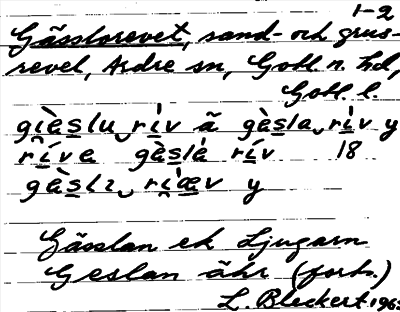 1-2
Gässlorevet, sand- och grus-
revel, Ardre sn, Gotl. n. hd,
Gotl. l.
gìèslu‿rív ã gèsla‿rív y
ríve gèslé rív 18
gèslı‿ríæv y
Gässlan ek Ljugarn
Geslan ähr (fork.)
L. Bleckert 196